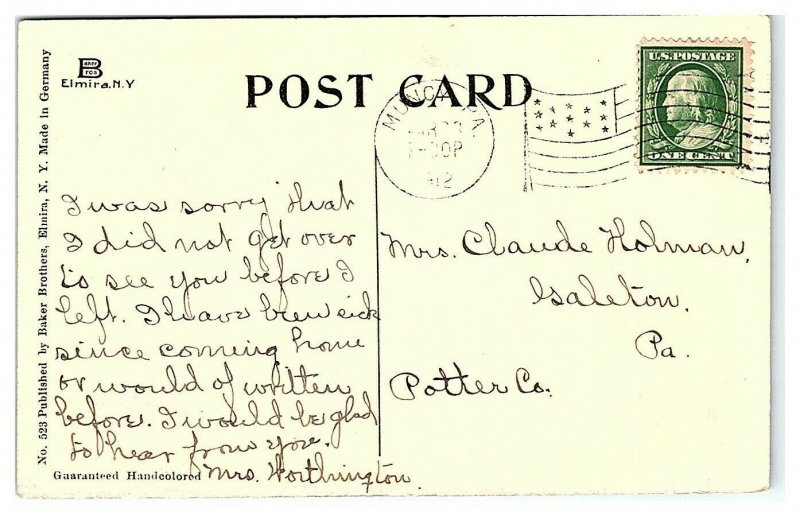 Baker
Bros
Elmira.N.Y
POST CARD
MUNCY PA
7-30P
U.S.POSTAGE
ONE CENT
No. 523 Published by Baker Brothers, Elmira, N. Y. Made in Germany
I was sorry that
I did not get over
to see you before I
left. I have been sick
since coming home
or would of written
before. I would be glad
to hear from you.
Mrs. Worthington.
Guaranteed Handcolored
Mrs. Claude Holman,
Galeton,
Pa.
Potter Co.